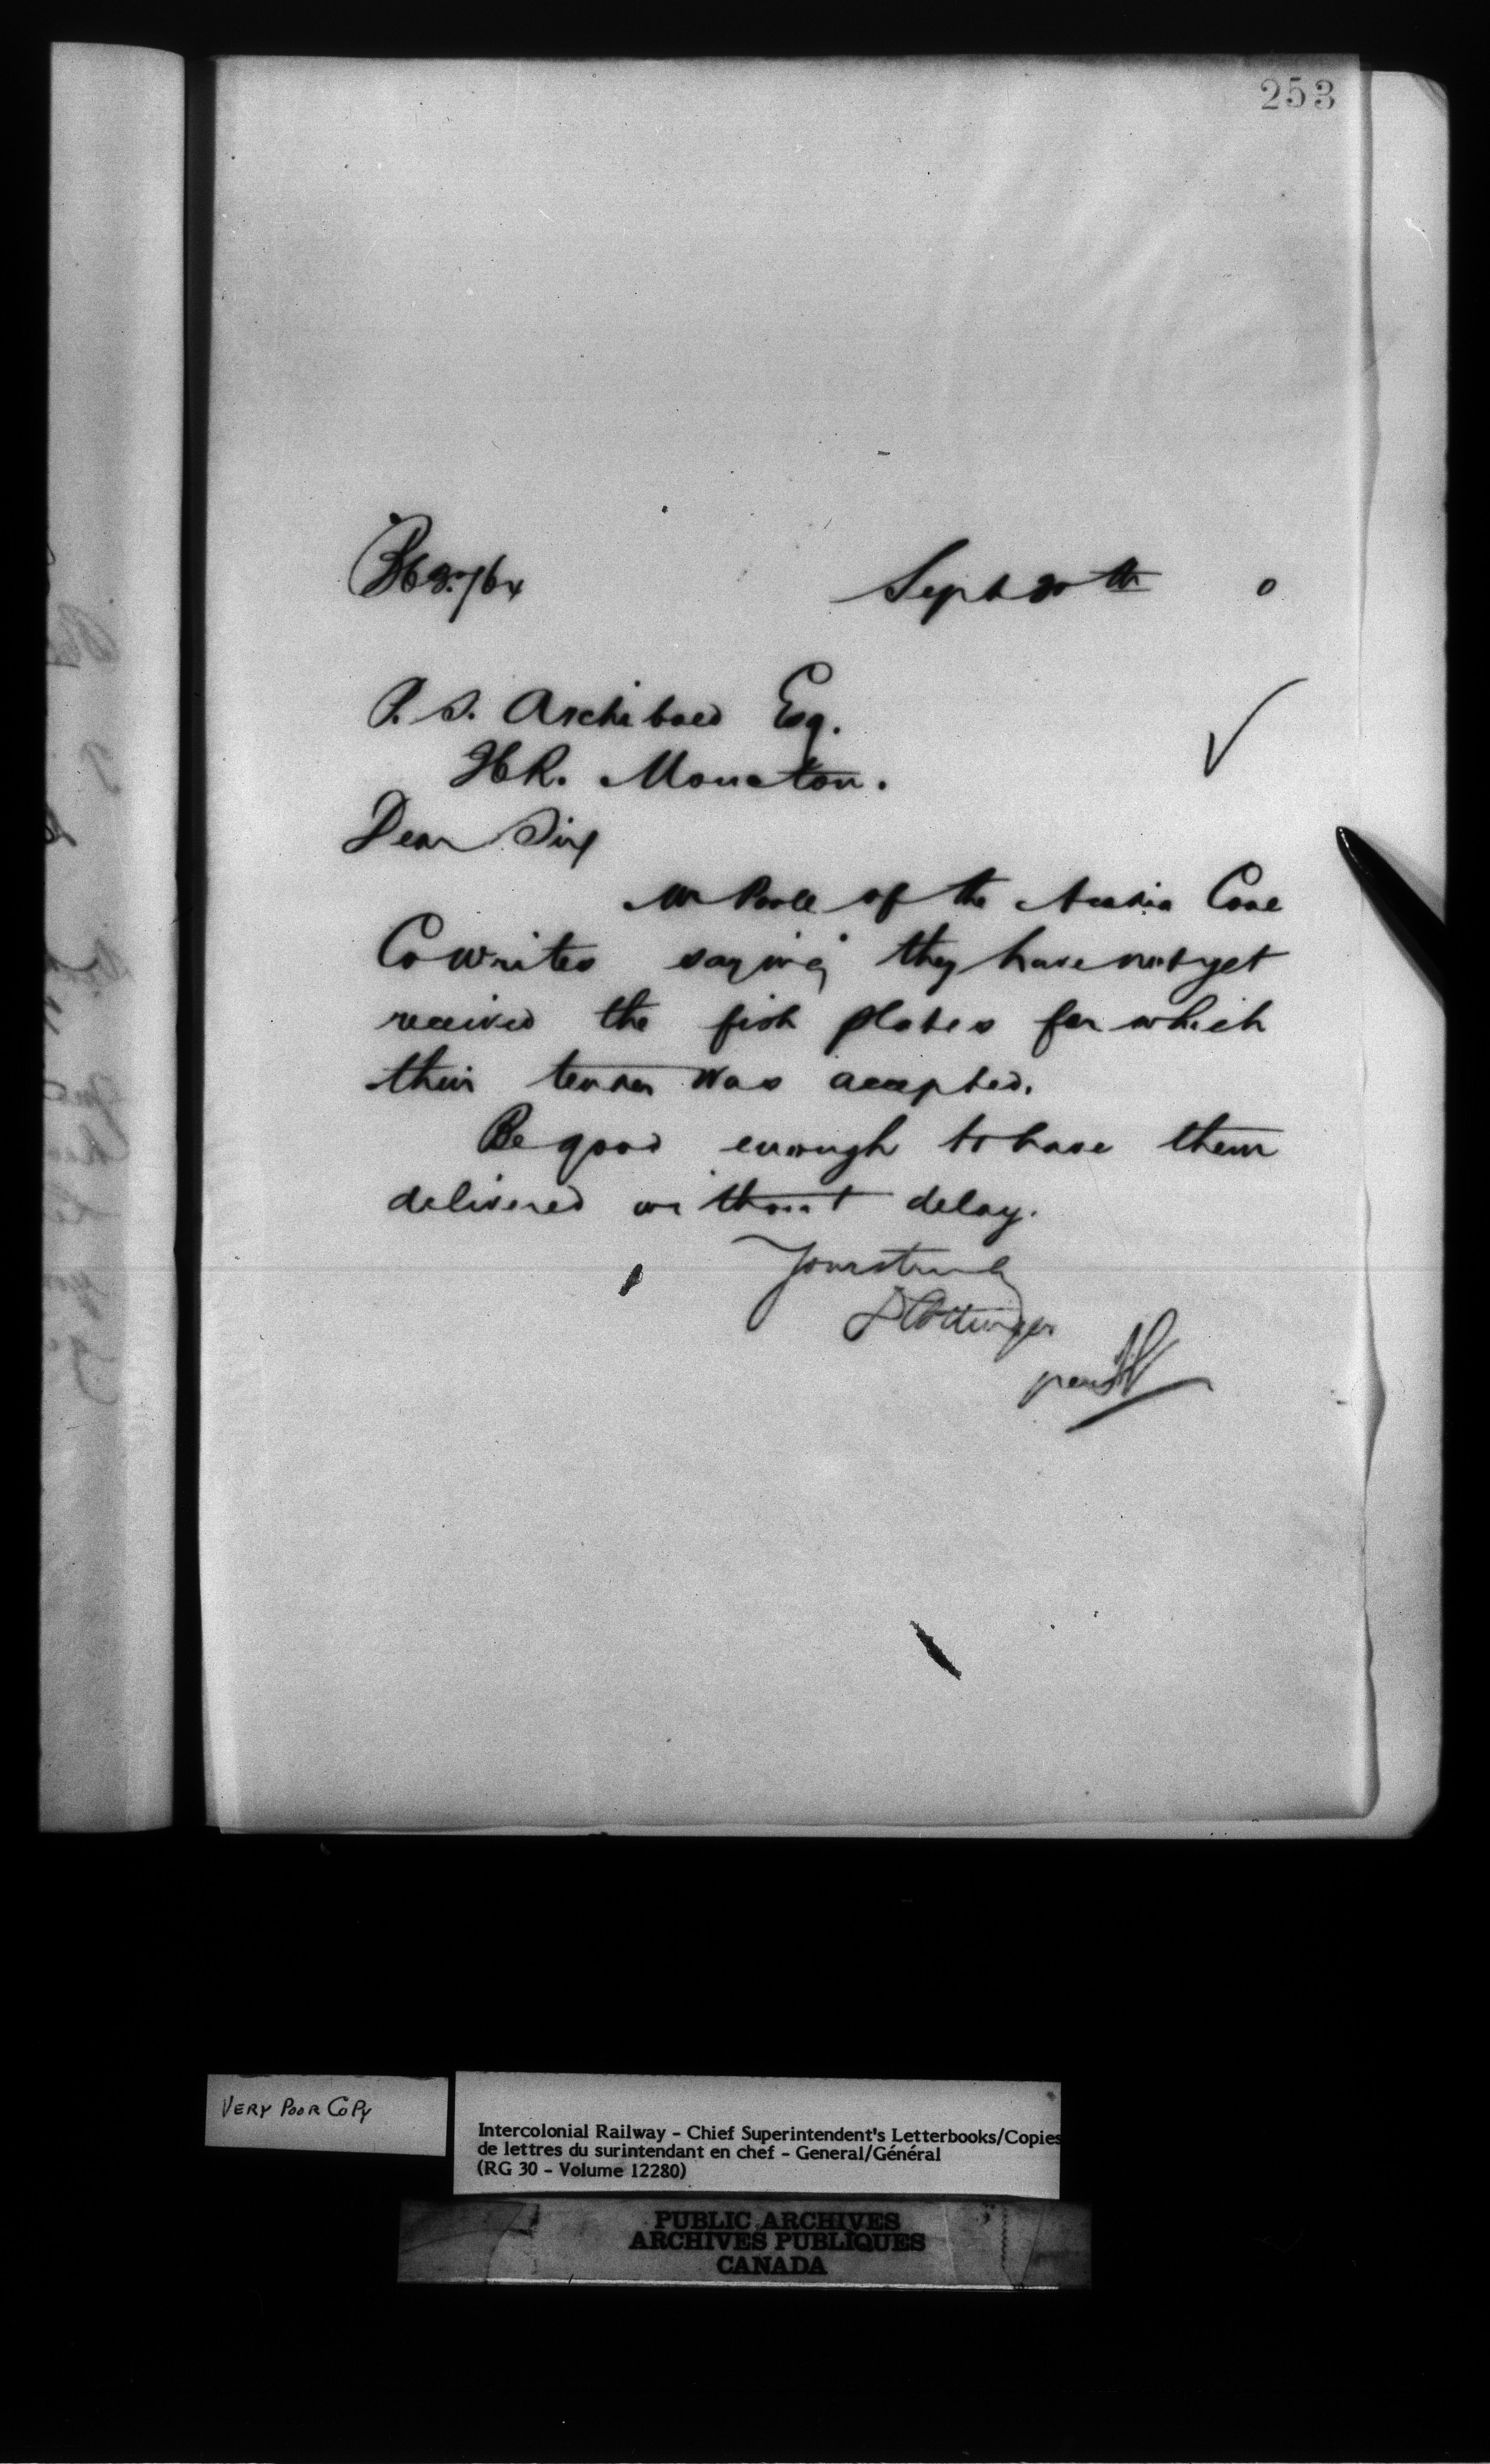 253
Sept 20th 0
P. S. Archibald Esq.
Moncton.
Dear Sir
Mr Poole of the Acadia Coal
Co writes saying they have not yet
received the fish plates for which
their tender was accepted.
Be good enough to have them
delivered without delay.
Yours truly
D Pottinger
per
VERY POOR COPY
Intercolonial Railway - Chief Superintendent's Letterbooks/Copies
de lettres du surintendant en chef - General/Général
(RG 30 - Volume 12280)
PUBLIC ARCHIVES
ARCHIVES PUBLIQUES
CANADA